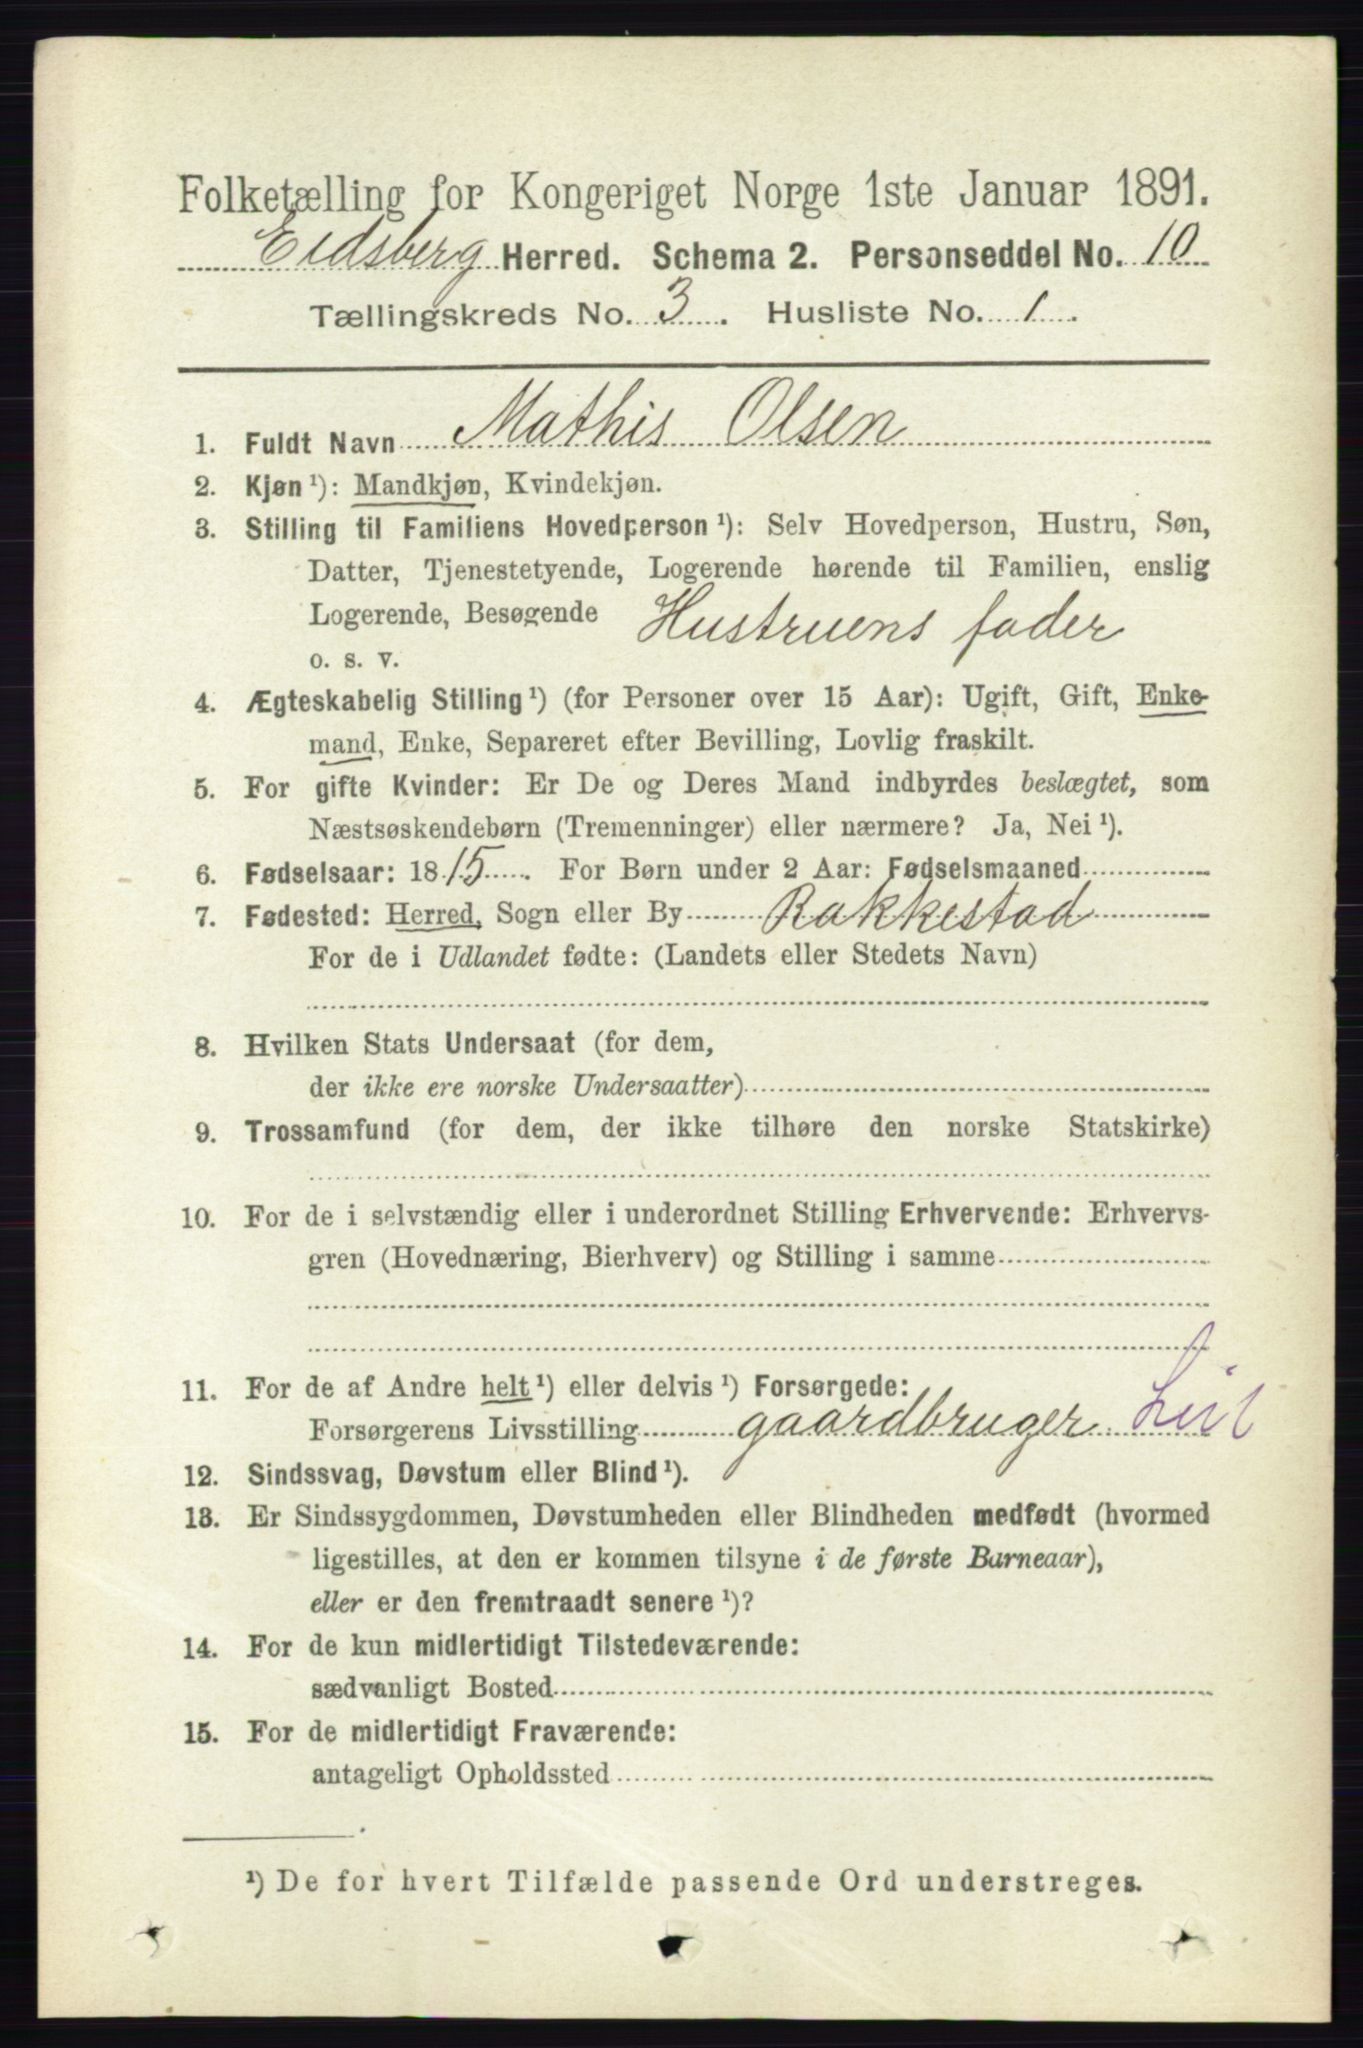 Folketælling for Kongeriget Norge 1ste Januar 1891.
Eidsberg Herred. Schema 2. Personseddel No. 10
Tællingskreds No. 3. Husliste No. 1.
1. Fuldt Navn Mathis Olsen
2. Kjøn ¹): Mandkjøn, Kvindekjøn.
3. Stilling til Familiens Hovedperson ¹): Selv Hovedperson, Hustru, Søn,
Datter, Tjenestetyende, Logerende hørende til Familien, enslig
Logerende, Besøgende Hustruens fader
o. s. v.
4. Ægteskabelig Stilling ¹) (for Personer over 15 Aar): Ugift, Gift, Enke-
mand, Enke, Separeret efter Bevilling, Lovlig fraskilt.
5. For gifte Kvinder: Er De og Deres Mand indbyrdes beslægtet, som
Næstsøskendebørn (Tremenninger) eller nærmere? Ja, Nei ¹).
6. Fødselsaar: 1815. For Børn under 2 Aar: Fødselsmaaned
7. Fødested: Herred, Sogn eller By Rakkestad
For de i Udlandet fødte: (Landets eller Stedets Navn)
8. Hvilken Stats Undersaat (for dem,
der ikke ere norske Undersaatter)
9. Trossamfund (for dem, der ikke tilhøre den norske Statskirke)
10. For de i selvstændig eller i underordnet Stilling Erhvervende: Erhvervs-
gren (Hovednæring, Bierhverv) og Stilling i samme
11. For de af Andre helt ¹) eller delvis ¹) Forsørgede:
Forsørgerens Livsstilling gaardbruger
12. Sindssvag, Døvstum eller Blind ¹).
13. Er Sindssygdommen, Døvstumheden eller Blindheden medfødt (hvormed
ligestilles, at den er kommen tilsyne i de første Barneaar),
eller er den fremtraadt senere ¹)?
14. For de kun midlertidigt Tilstedeværende:
sædvanligt Bosted
15. For de midlertidigt Fraværende:
antageligt Opholdssted
¹) De for hvert Tilfælde passende Ord understreges.